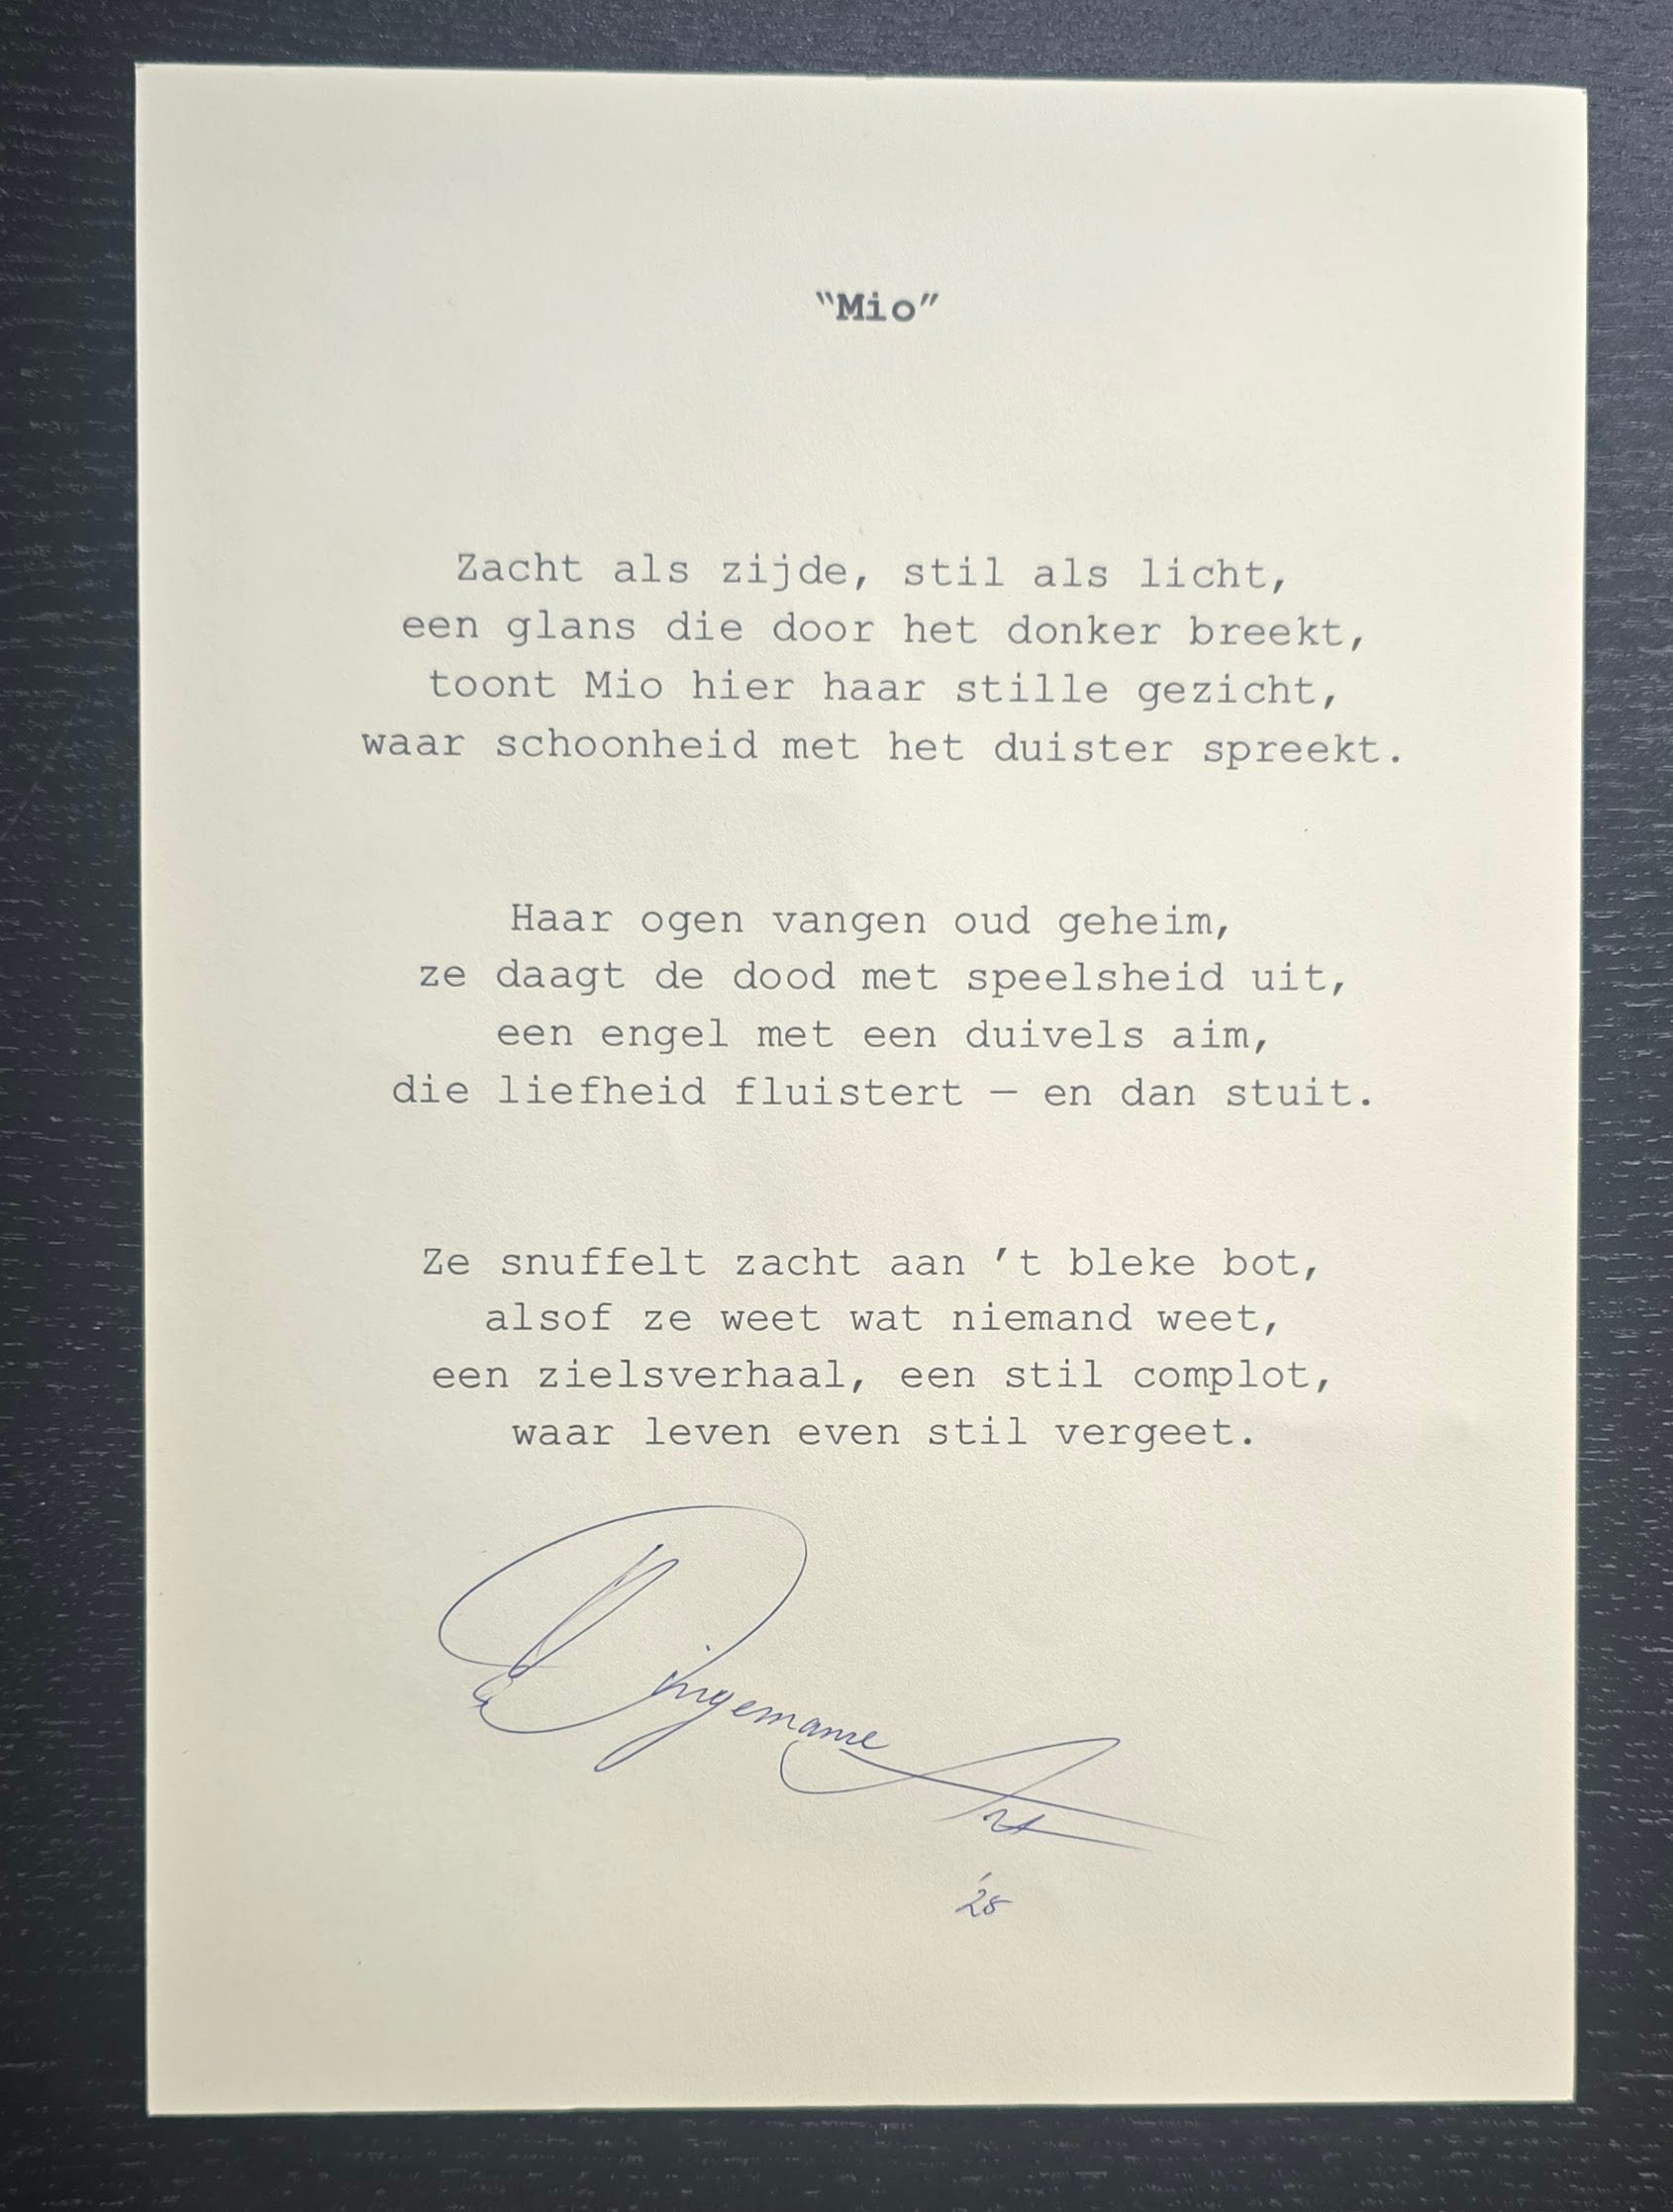 “Mio”
Zacht als zijde, stil als licht,
een glans die door het donker breekt,
toont Mio hier haar stille gezicht,
waar schoonheid met het duister spreekt.
Haar ogen vangen oud geheim,
ze daagt de dood met speelsheid uit,
een engel met een duivels aim,
die liefheid fluistert — en dan stuit.
Ze snuffelt zacht aan ’t bleke bot,
alsof ze weet wat niemand weet,
een zielsverhaal, een stil complot,
waar leven even stil vergeet.
Dingemanse
Art
'25